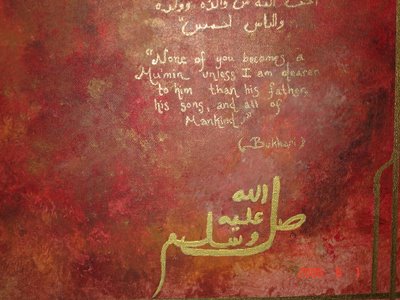 احب اليه من والده وولده
والناس اجمعين"
"None of you becomes a
Mu'min unless I am dearer
to him than his father,
his sons, and all of
Mankind."
(Bukhari)
صلى الله
عليه
وسلم